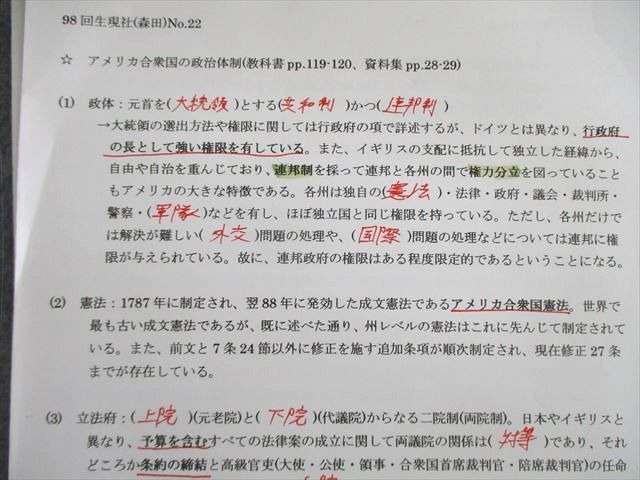 98回生現社(森田)No.22
☆ アメリカ合衆国の政治体制(教科書pp.119-120、資料集pp.28-29)
(1) 政体：元首を(大統領)とする(共和制)かつ(連邦制)
→大統領の選出方法や権限に関しては行政府の項で詳述するが、ドイツとは異なり、行政府
の長として強い権限を有している。また、イギリスの支配に抵抗して独立した経緯から、
自由や自治を重んじており、連邦制を採って連邦と各州の間で権力分立を図っていること
もアメリカの大きな特徴である。各州は独自の(憲法)・法律・政府・議会・裁判所・
警察・(軍隊)などを有し、ほぼ独立国と同じ権限を持っている。ただし、各州だけで
は解決が難しい(外交)問題の処理や、(国際)問題の処理などについては連邦に権
限が与えられている。故に、連邦政府の権限はある程度限定的であるということになる。
(2) 憲法：1787年に制定され、翌88年に発効した成文憲法であるアメリカ合衆国憲法。世界で
最も古い成文憲法であるが、既に述べた通り、州レベルの憲法はこれに先んじて制定されて
いる。また、前文と7条24節以外に修正を施す追加条項が順次制定され、現在修正27条
までが存在している。
(3) 立法府：(上院)(元老院)と(下院)(代議院)からなる二院制(両院制)。日本やイギリスと
異なり、予算を含むすべての法律案の成立に関して両議院の関係は(対等)であり、それ
どころか条約の締結と高級官吏(大使・公使・領事・合衆国首席裁判官・陪席裁判官)の任命